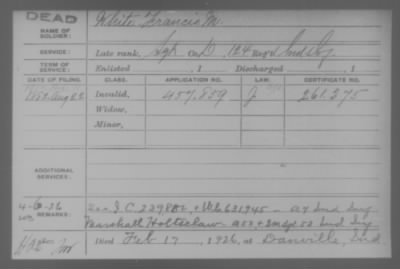 DEAD
NAME OF SOLDIER:
White Francis M.
SERVICE:
Late rank, Sgt Co. D, 124 Reg't Ind Inf
TERM OF SERVICE:
Enlisted , 1 Discharged , 1
DATE OF FILING. CLASS. APPLICATION NO. LAW. CERTIFICATE NO.
Invalid, 457.859 J 261.375
Widow,
Minor,
ADDITIONAL SERVICES:
4-6-26
REMARKS:
See J C. 229,801, + W C 631945 — A 7 Ind Inf
Marshall Holtsclaw — A 53 + Inds 53 Ind Inf
Died Feb 17, 1926, at Danville, Ind